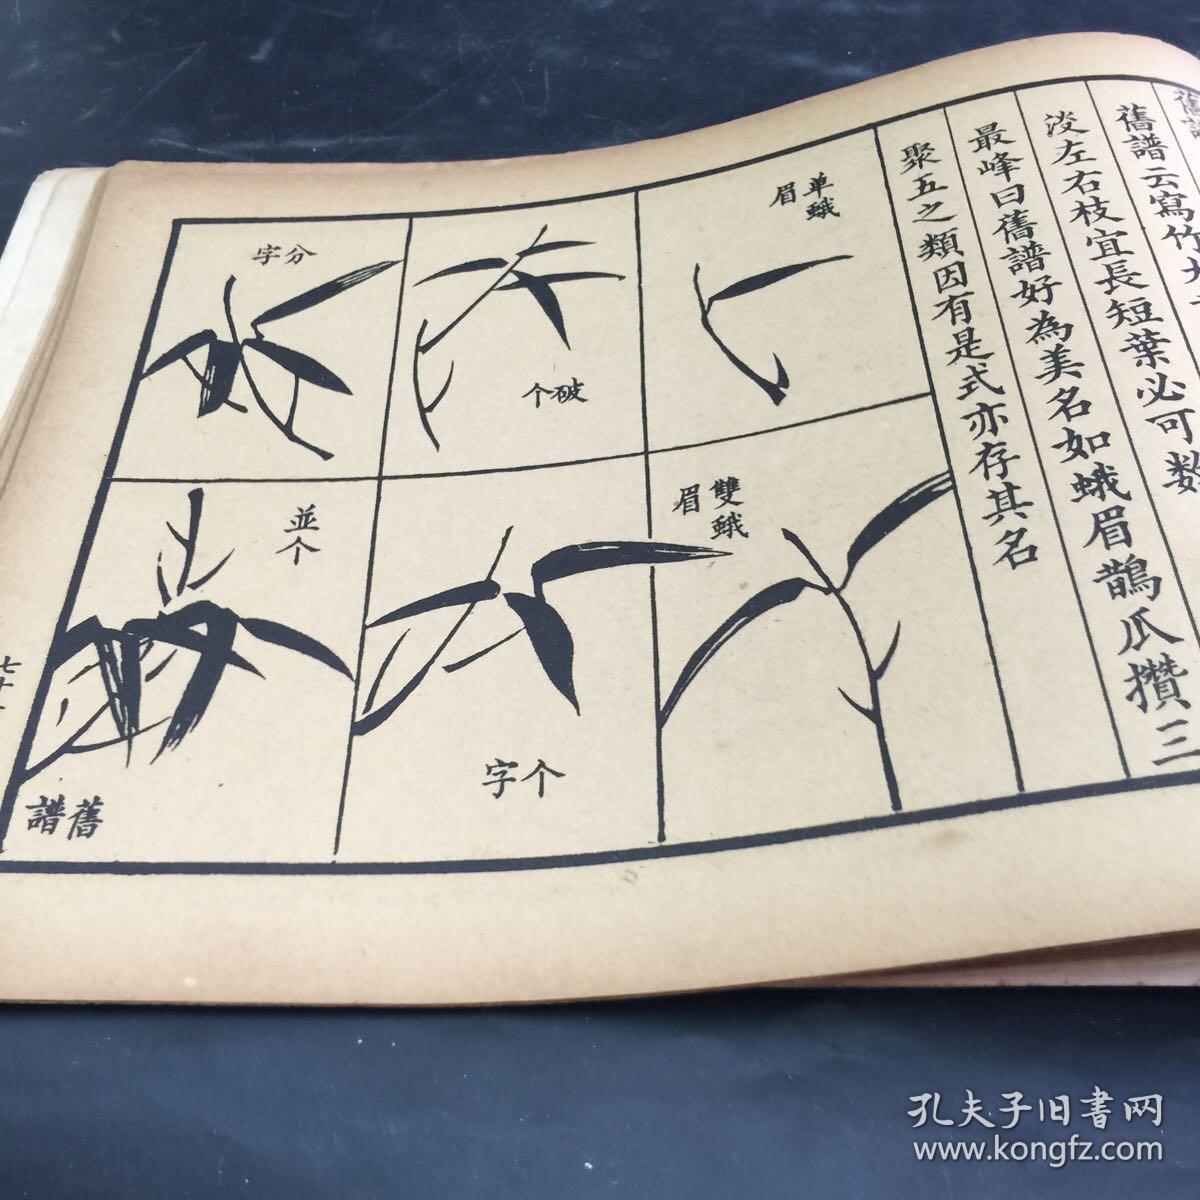 舊譜
舊譜云寫竹
淡左右枝宜長短葉必可数
最峰曰舊譜好為美名如蛾眉鵲爪攢三
聚五之類因有是式亦存其名
单蛾
眉
雙蛾
眉
破个
个字
分字
並个
舊譜
七十
孔夫子旧書网
www.kongfz.com